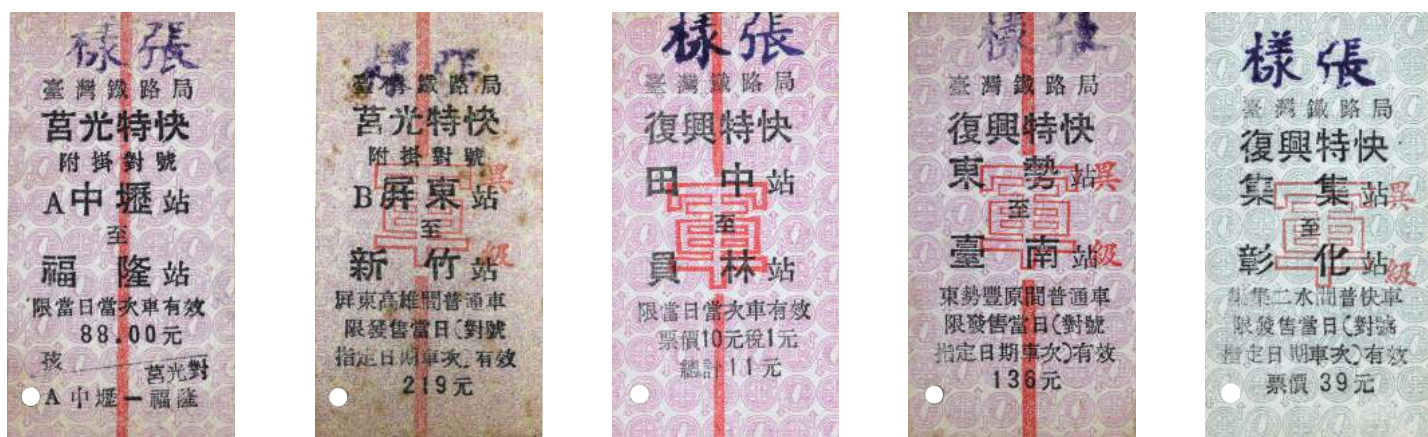 樣張
臺灣鐵路局
莒光特快
附掛對號
A中壢站
至
福隆站
限當日當次車有效
88.00元
孩 莒光對
A中壢—福隆
樣張
臺灣鐵路局
莒光特快
附掛對號
B屏東站
至
新竹站
軍
異級
屏東高雄間普通車
限發售當日(對號
指定日期車次)有效
219元
樣張
臺灣鐵路局
復興特快
田中站
至
員林站
軍
限當日當次車有效
票價10元稅1元
總計11元
樣張
臺灣鐵路局
復興特快
東勢站
至
臺南站
軍
異級
東勢豐原間普通車
限發售當日(對號
指定日期車次)有效
136元
樣張
臺灣鐵路局
復興特快
集集站
至
彰化站
軍
異級
集集二水間普快車
限發售當日(對號
指定日期車次)有效
票價 39元